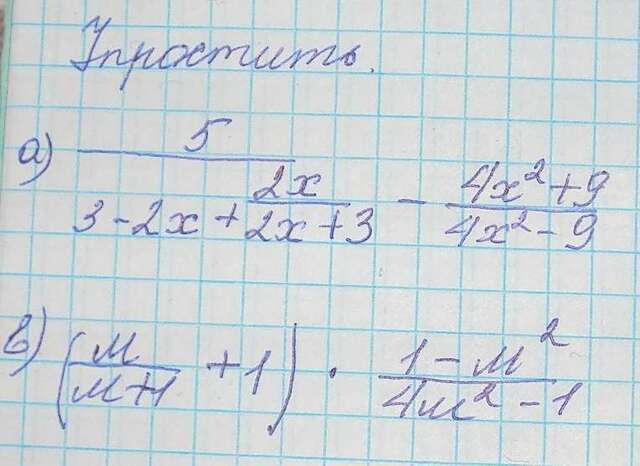 Упростить.
а) 5/(3-2x + 2x/(2x+3)) - (4x²+9)/(4x²-9)
в) (м/(м+1) + 1) · (1-м²)/(4м²-1)